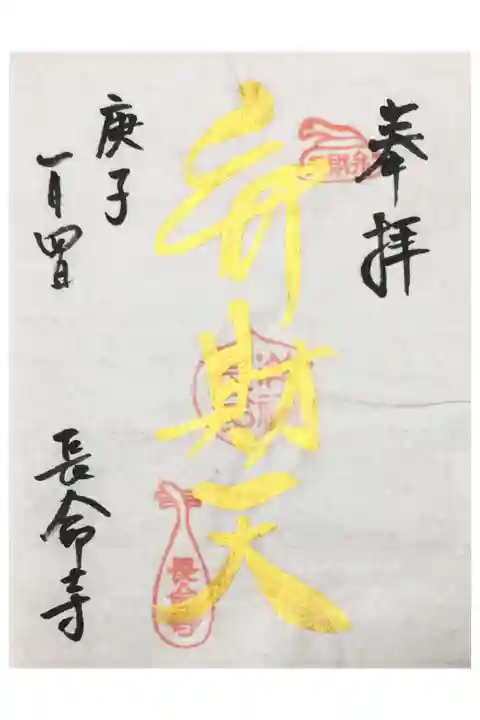 奉拝
弁財天
庚子
一月四日
長命寺
長命寺